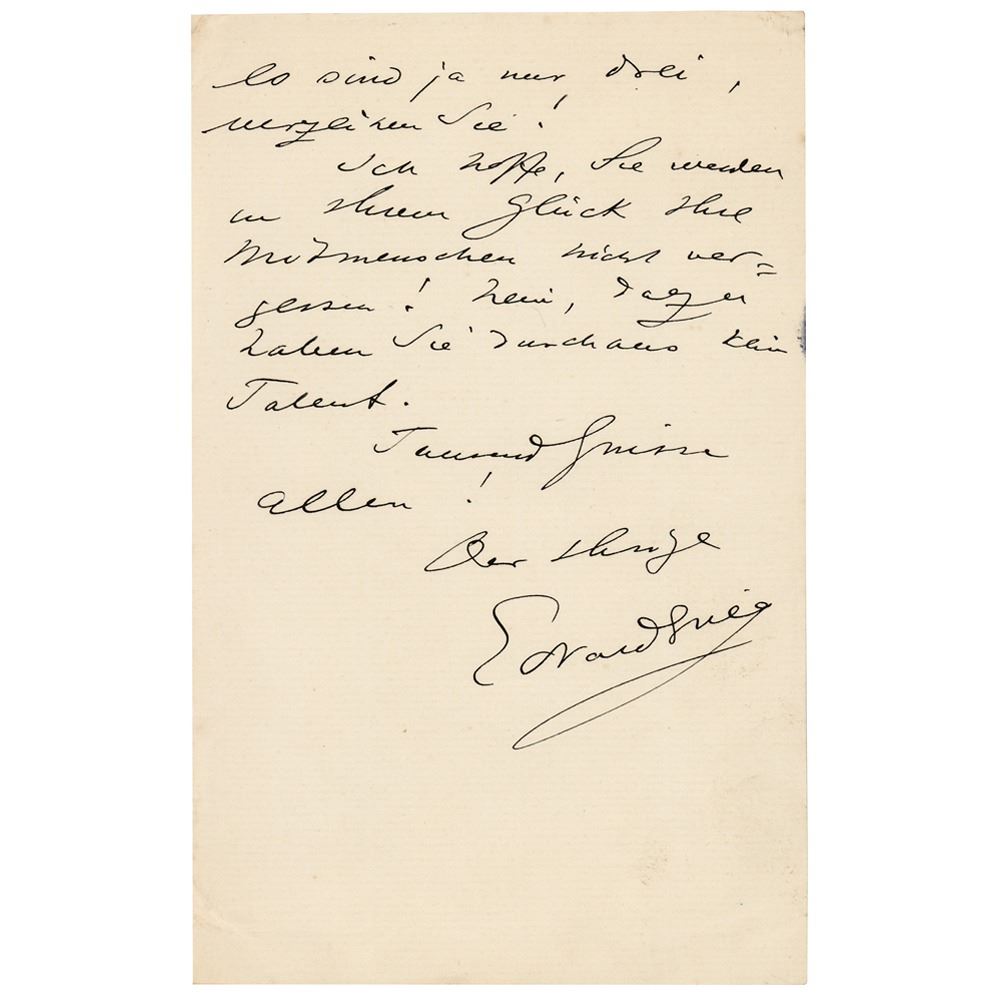 Es sind ja nur drei,
verzeihen Sie!
Ich hoffe, Sie werden
in Ihrem Glück Ihre
Mitmenschen nicht ver=
gessen! Nein, dazu
haben Sie durchaus kein
Talent.
Tausend Grüsse
allen!
Der Ihrige
Edvard Grieg